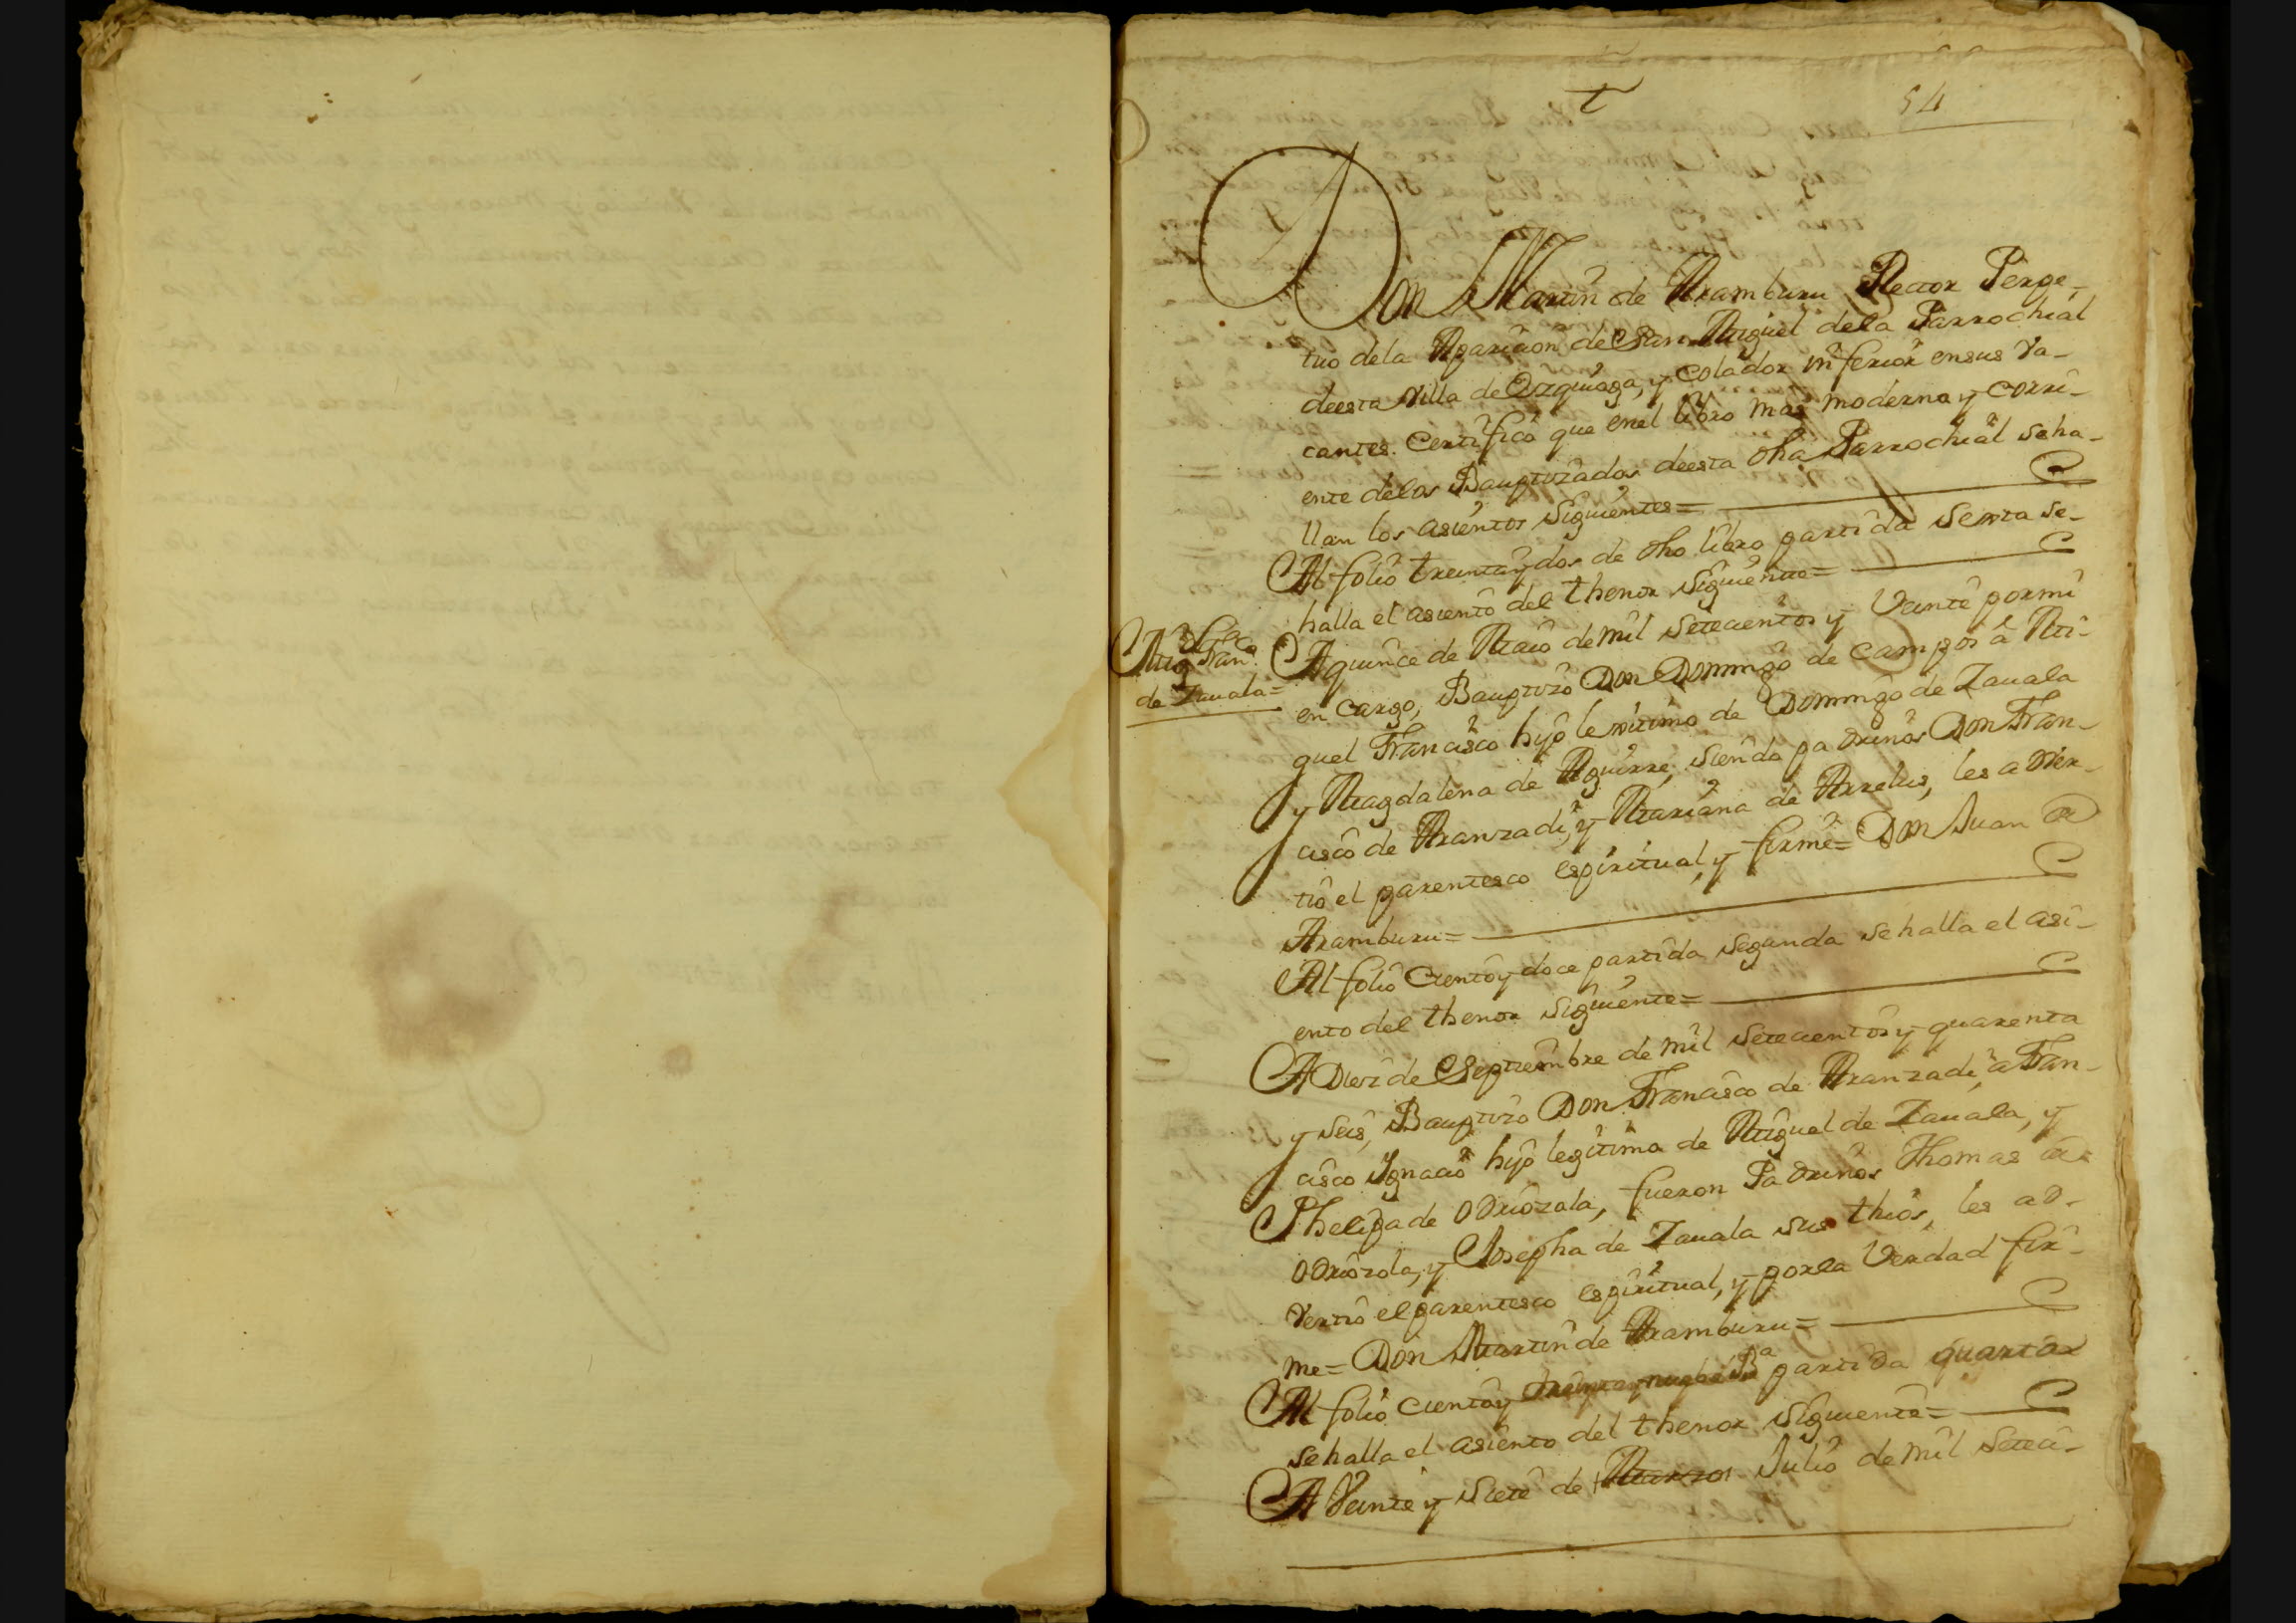 t
54
Don Martin de Aramburu Rector Perpe-
tuo dela Aparicion de San Miguel dela Parrochial
deesta Villa de Ezquioga, y Colador inferior ensus Va-
cantes. Certifico que enel libro mas moderno y corri-
ente delos Bauptizados deesta dha Parrochial seha-
llan los asientos siguientes=
Al folio treintaydos de dho libro partida sexta se
halla el asiento del thenor siguiente=
Mig.l Fran.co
de Zauala=
A quince de Maio de mil setecientos y Veinte pormi
en cargo, Bauptizo Don Domingo de Campos â Mi-
guel Francisco hijo lexitimo de Domingo de Zauala
y Magdalena de Aguirre, siendo padrinos Don Fran-
cisco de Aranzadi, y Mariana de Arrelus, les adver-
tio el parentesco espiritual, y firmè= Don Juan de
Aramburu=
Al folio Ciento y doce partida segunda se halla el asi-
ento del thenor siguiente=
A Diez de Septiembre de mil setecientos y quarenta
y seis, Bauptizo Don Francisco de Aranzadi, a Fran-
cisco Ygnacio hijo legitimo de Miguel de Zauala, y
Phelipa de Odriozola, fueron Padrinos Thomas de
Odriozola, y Josepha de Zauala sus thios, les ad-
Vertio el parentesco espiritual, y porla Verdad fir-
me= Don Martin de Aramburu=
Al folio ciento y partida quarta
sehalla el asiento del thenor siguiente=
A Veinte y siete de Marzo Julio de mil seteci-